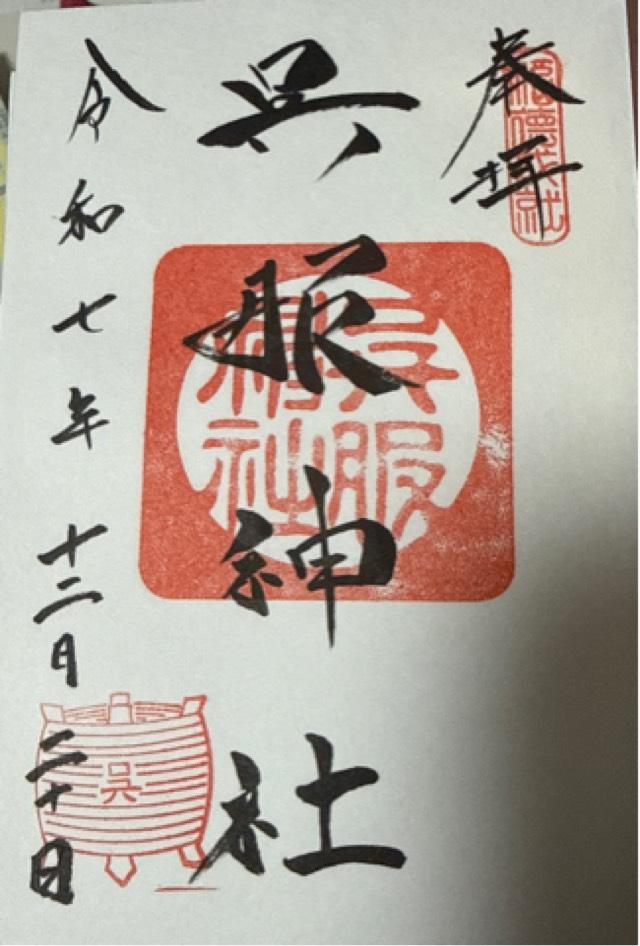 奉拝
呉服神社
呉服
神社
令和七年十二月二十日
呉